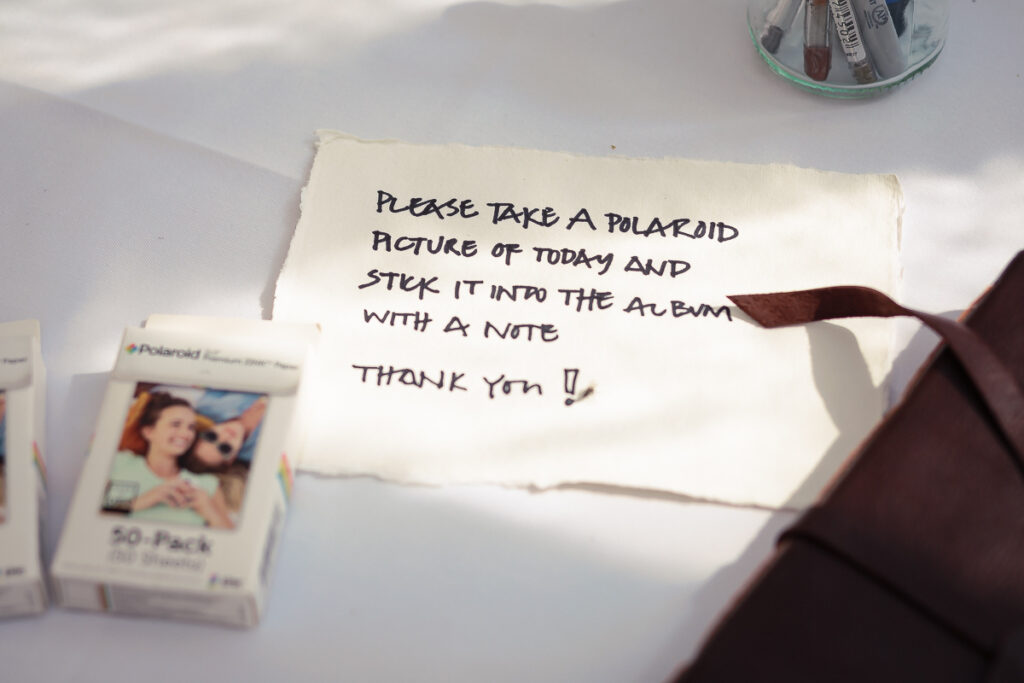 PLEASE TAKE A POLAROID
PICTURE OF TODAY AND
STICK IT INTO THE ALBUM
WITH A NOTE
THANK YOU !
Polaroid
Premium ZINK Paper
50-Pack
(50 Sheets)